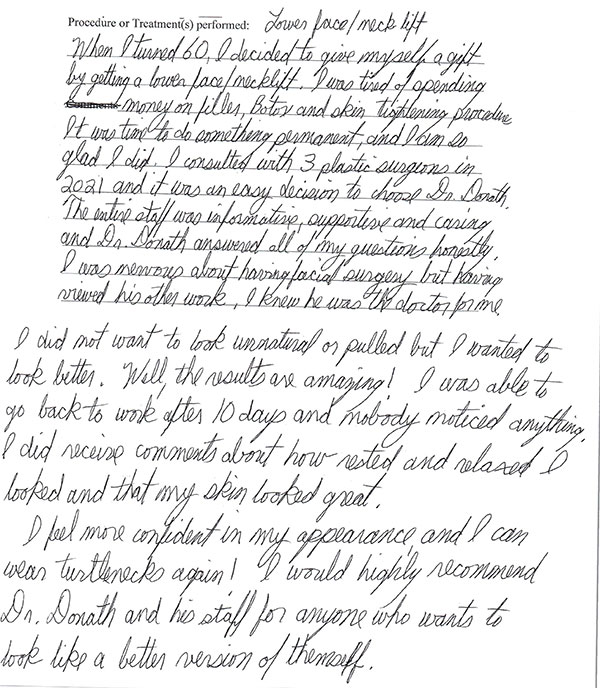 Procedure or Treatment(s) performed: Lower face/neck lift
When I turned 60, I decided to give myself a gift
by getting a lower face/necklift. I was tired of spending
Comments money on filler, Botox and skin tightening procedure
It was time to do something permanent, and I am so
glad I did. I consulted with 3 plastic surgeons in
2021 and it was an easy decision to choose Dr. Donath.
The entire staff was informative, supportive and caring
and Dr. Donath answered all of my questions honestly.
I was nervous about having facial surgery but having
viewed his other work, I knew he was the doctor for me.
I did not want to look unnatural or pulled but I wanted to
look better. Well, the results are amazing! I was able to
go back to work after 10 days and nobody noticed anything.
I did receive comments about how rested and relaxed I
looked and that my skin looked great.
I feel more confident in my appearance and I can
wear turtlenecks again! I would highly recommend
Dr. Donath and his staff for anyone who wants to
look like a better version of themself.